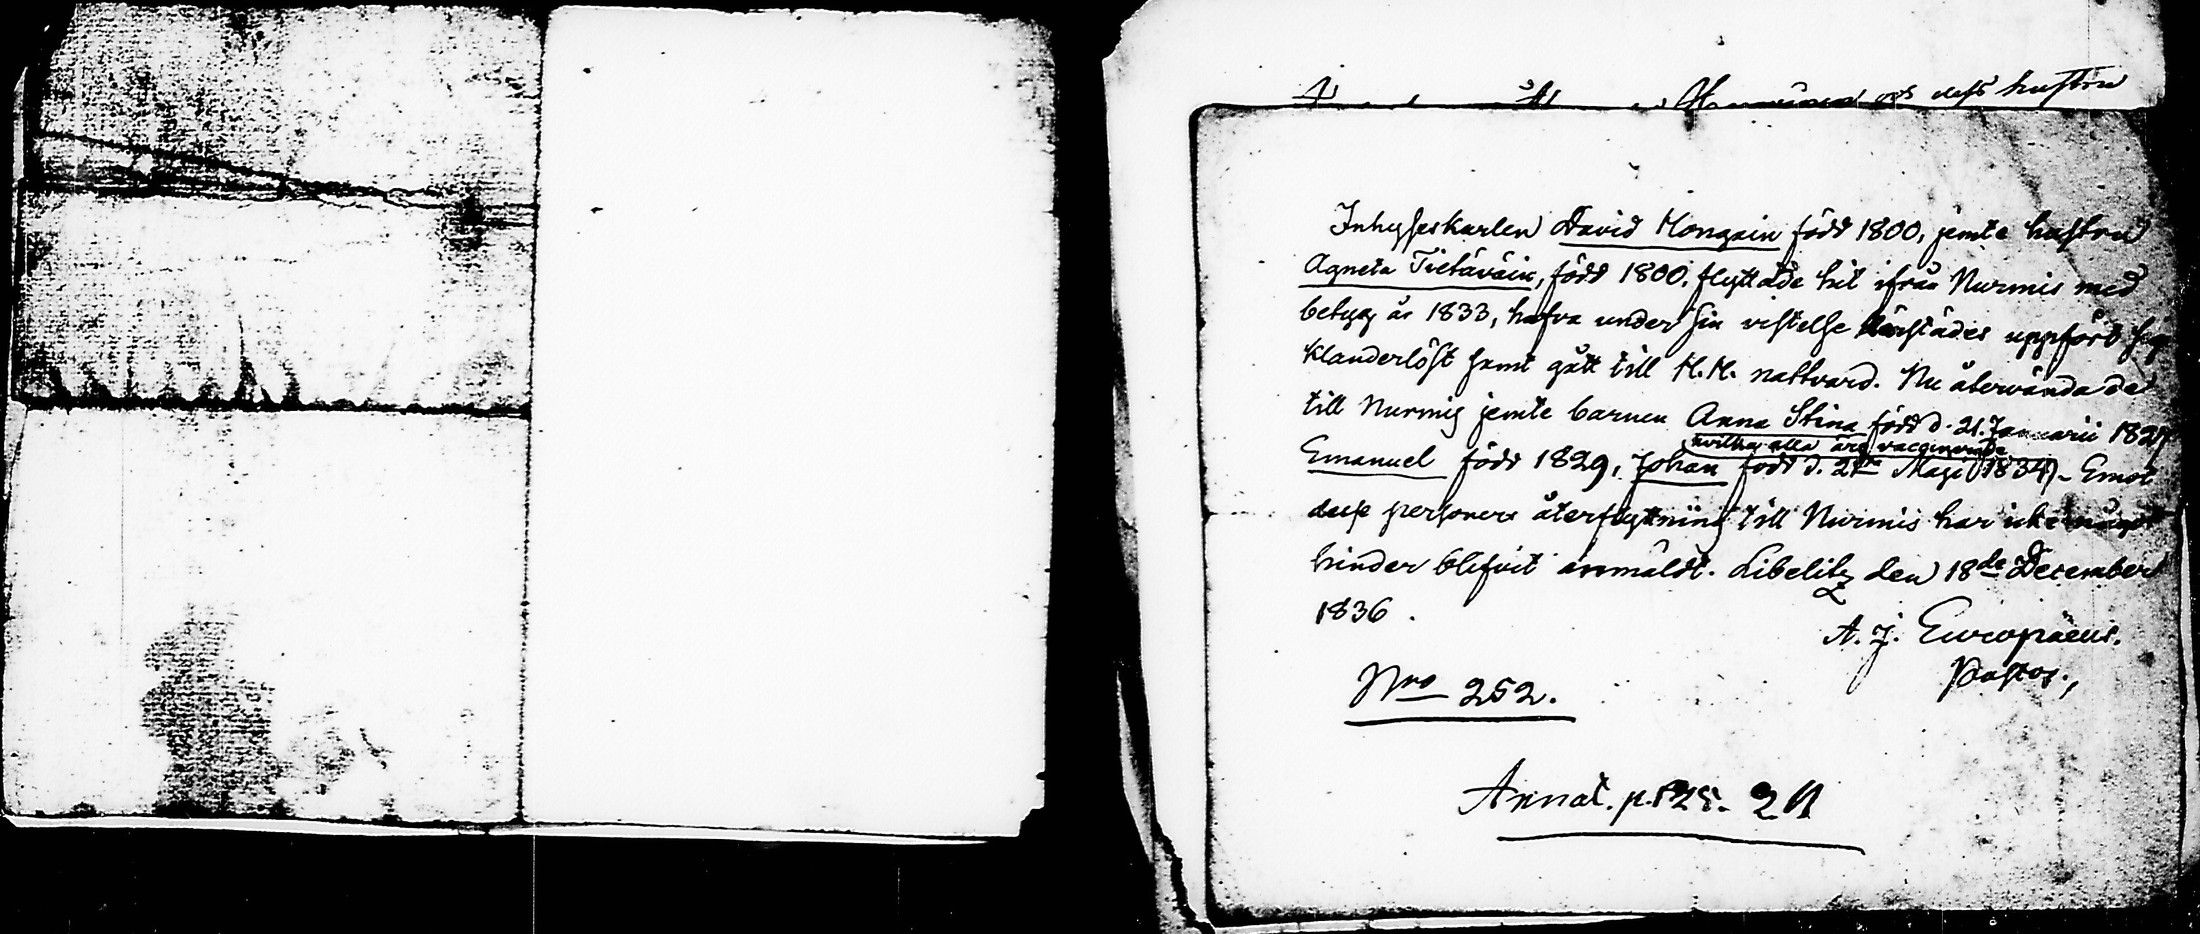 och dess hustru
Inhyseskarlen David Hongain född 1800, jemte hustru
Agneta Tietäväin, född 1800. flyttade hit ifrån Nurmis med
betyg år 1833, hafva under sin vistelse härstädes uppfört sig
klanderlöst samt gått till H. H. nattvard. Nu återvända de
till Nurmis jemte barnen Anna Stina född d. 21. Januarii 1827
hvilka alla äro vaccinerade
Emanuel född 1829, Johan född d. 21ste Maji 1834) - Emot
desse personers återflyttning till Nurmis har icke något
hinder blifvit anmäldt. Libelitz den 18de December
1836.
A. J. Europaeus.
Pastor.,
Nro 252.
Annot. p. 125.